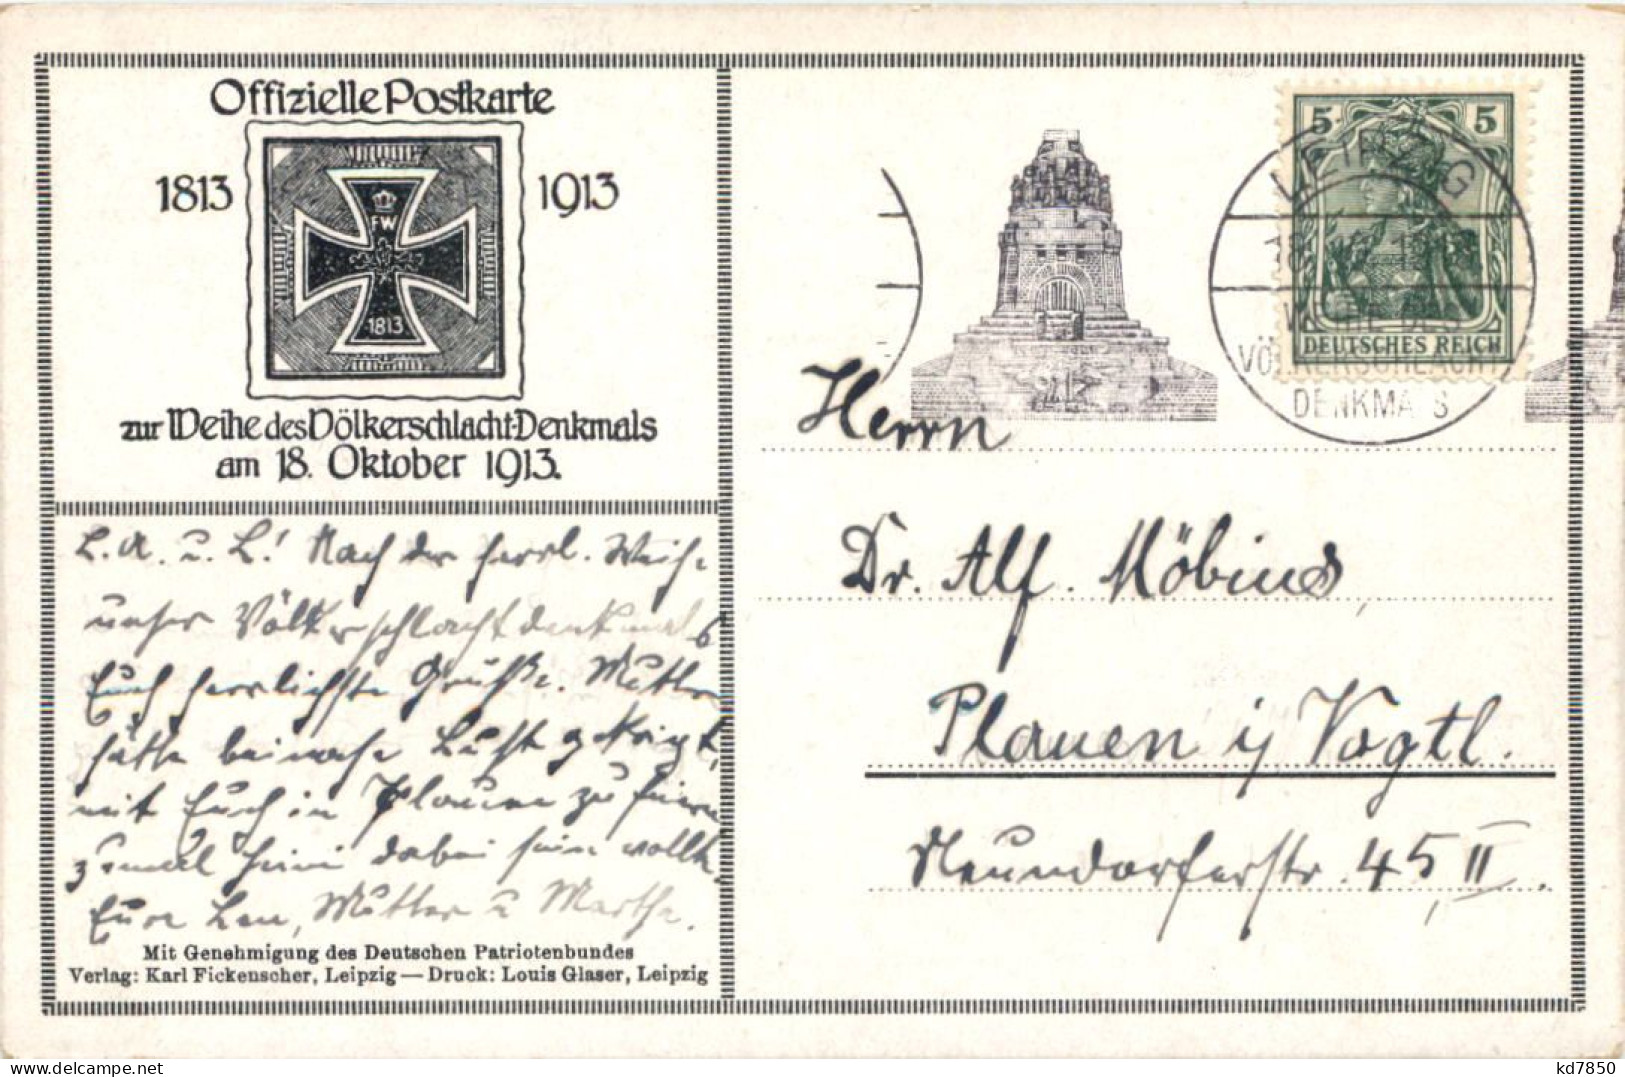 Offizielle Postkarte
1813 1913
FW
1813
zur Weihe des Völkerschlacht-Denkmals
am 18. Oktober 1913.
L. A. u. L.! Nach der herrl. Weihe
unser Völkerschlachtdenkmals
Euch herzlichste Grüße. Mutter
hätte beinahe Lust gekriegt,
mit Euch in Plauen zu feiern
zumal Heini dabei sein wollte.
Eure Len, Mutter u Martha.
Mit Genehmigung des Deutschen Patriotenbundes
Verlag: Karl Fickenscher, Leipzig — Druck: Louis Glaser, Leipzig
5 5
DEUTSCHES REICH
LEIPZIG
WEIHE DES
VÖLKERSCHLACHT
DENKMALS
Herrn
Dr. Alf. Möbius,
Plauen i/ Vogtl.
Neundorferstr. 45, II.
kd7850